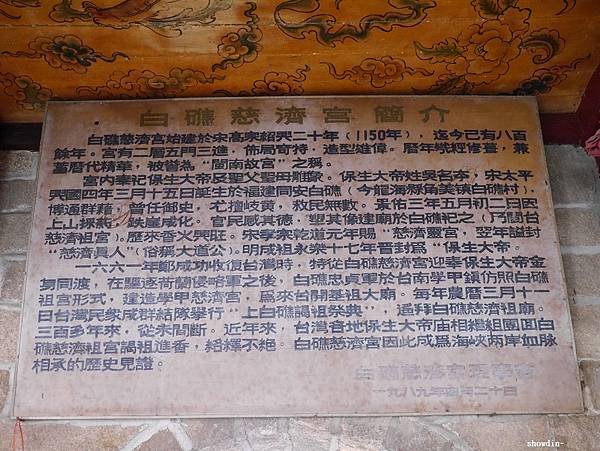 白礁慈濟宮簡介
白礁慈濟宮始建於宋高宗紹興二十年（1150年），迄今已有八百
餘年。宮有二層五門三進，佈局奇特，造型雄偉。曆年幾經修葺，兼
蓄曆代精華，被譽為“閩南故宮”之稱。
宮內奉祀保生大帝及聖父聖母雕像。保生大帝姓吳名本，宋太平
興國四年三月十五日誕生於福建同安白礁（今龍海縣角美镇白礁村）。
博通群籍，曾任御史，尤擅岐黃，救民無數。景佑三年五月初二日因
上山採藥，跌崖咸化。官民感其德，塑其像建廟於白礁祀之（乃閩台
慈濟祖宮）。歷來香火興旺。宋孝宗乾道元年賜“慈濟靈宮”，翌年謚封
“慈濟真人”（俗稱大道公）。明成祖永樂十七年晋封為“保生大帝。
一六六一年鄭成功收復台灣時，特從白礁慈濟宮迎奉保生大帝金
身同渡，在驅逐荷蘭侵略軍之後，白礁忠貞軍於台南學甲鎮仿照白礁
祖宮形式，建造學甲慈濟宮，為來台開基祖大廟。每年農曆三月十一
日台灣民眾咸群結隊舉行“上白礁謁祖祭典”，遥拜白礁慈濟祖廟。
三百多年來，從未間斷。近年來，台灣各地保生大帝廟相繼組團面白
礁慈濟祖宮謁祖進香，絡繹不絕。白礁慈濟宮因此成爲海峽兩岸血脈
相承的歷史見證。
白礁慈濟宮
一九八九年四月二十四日
showdin-